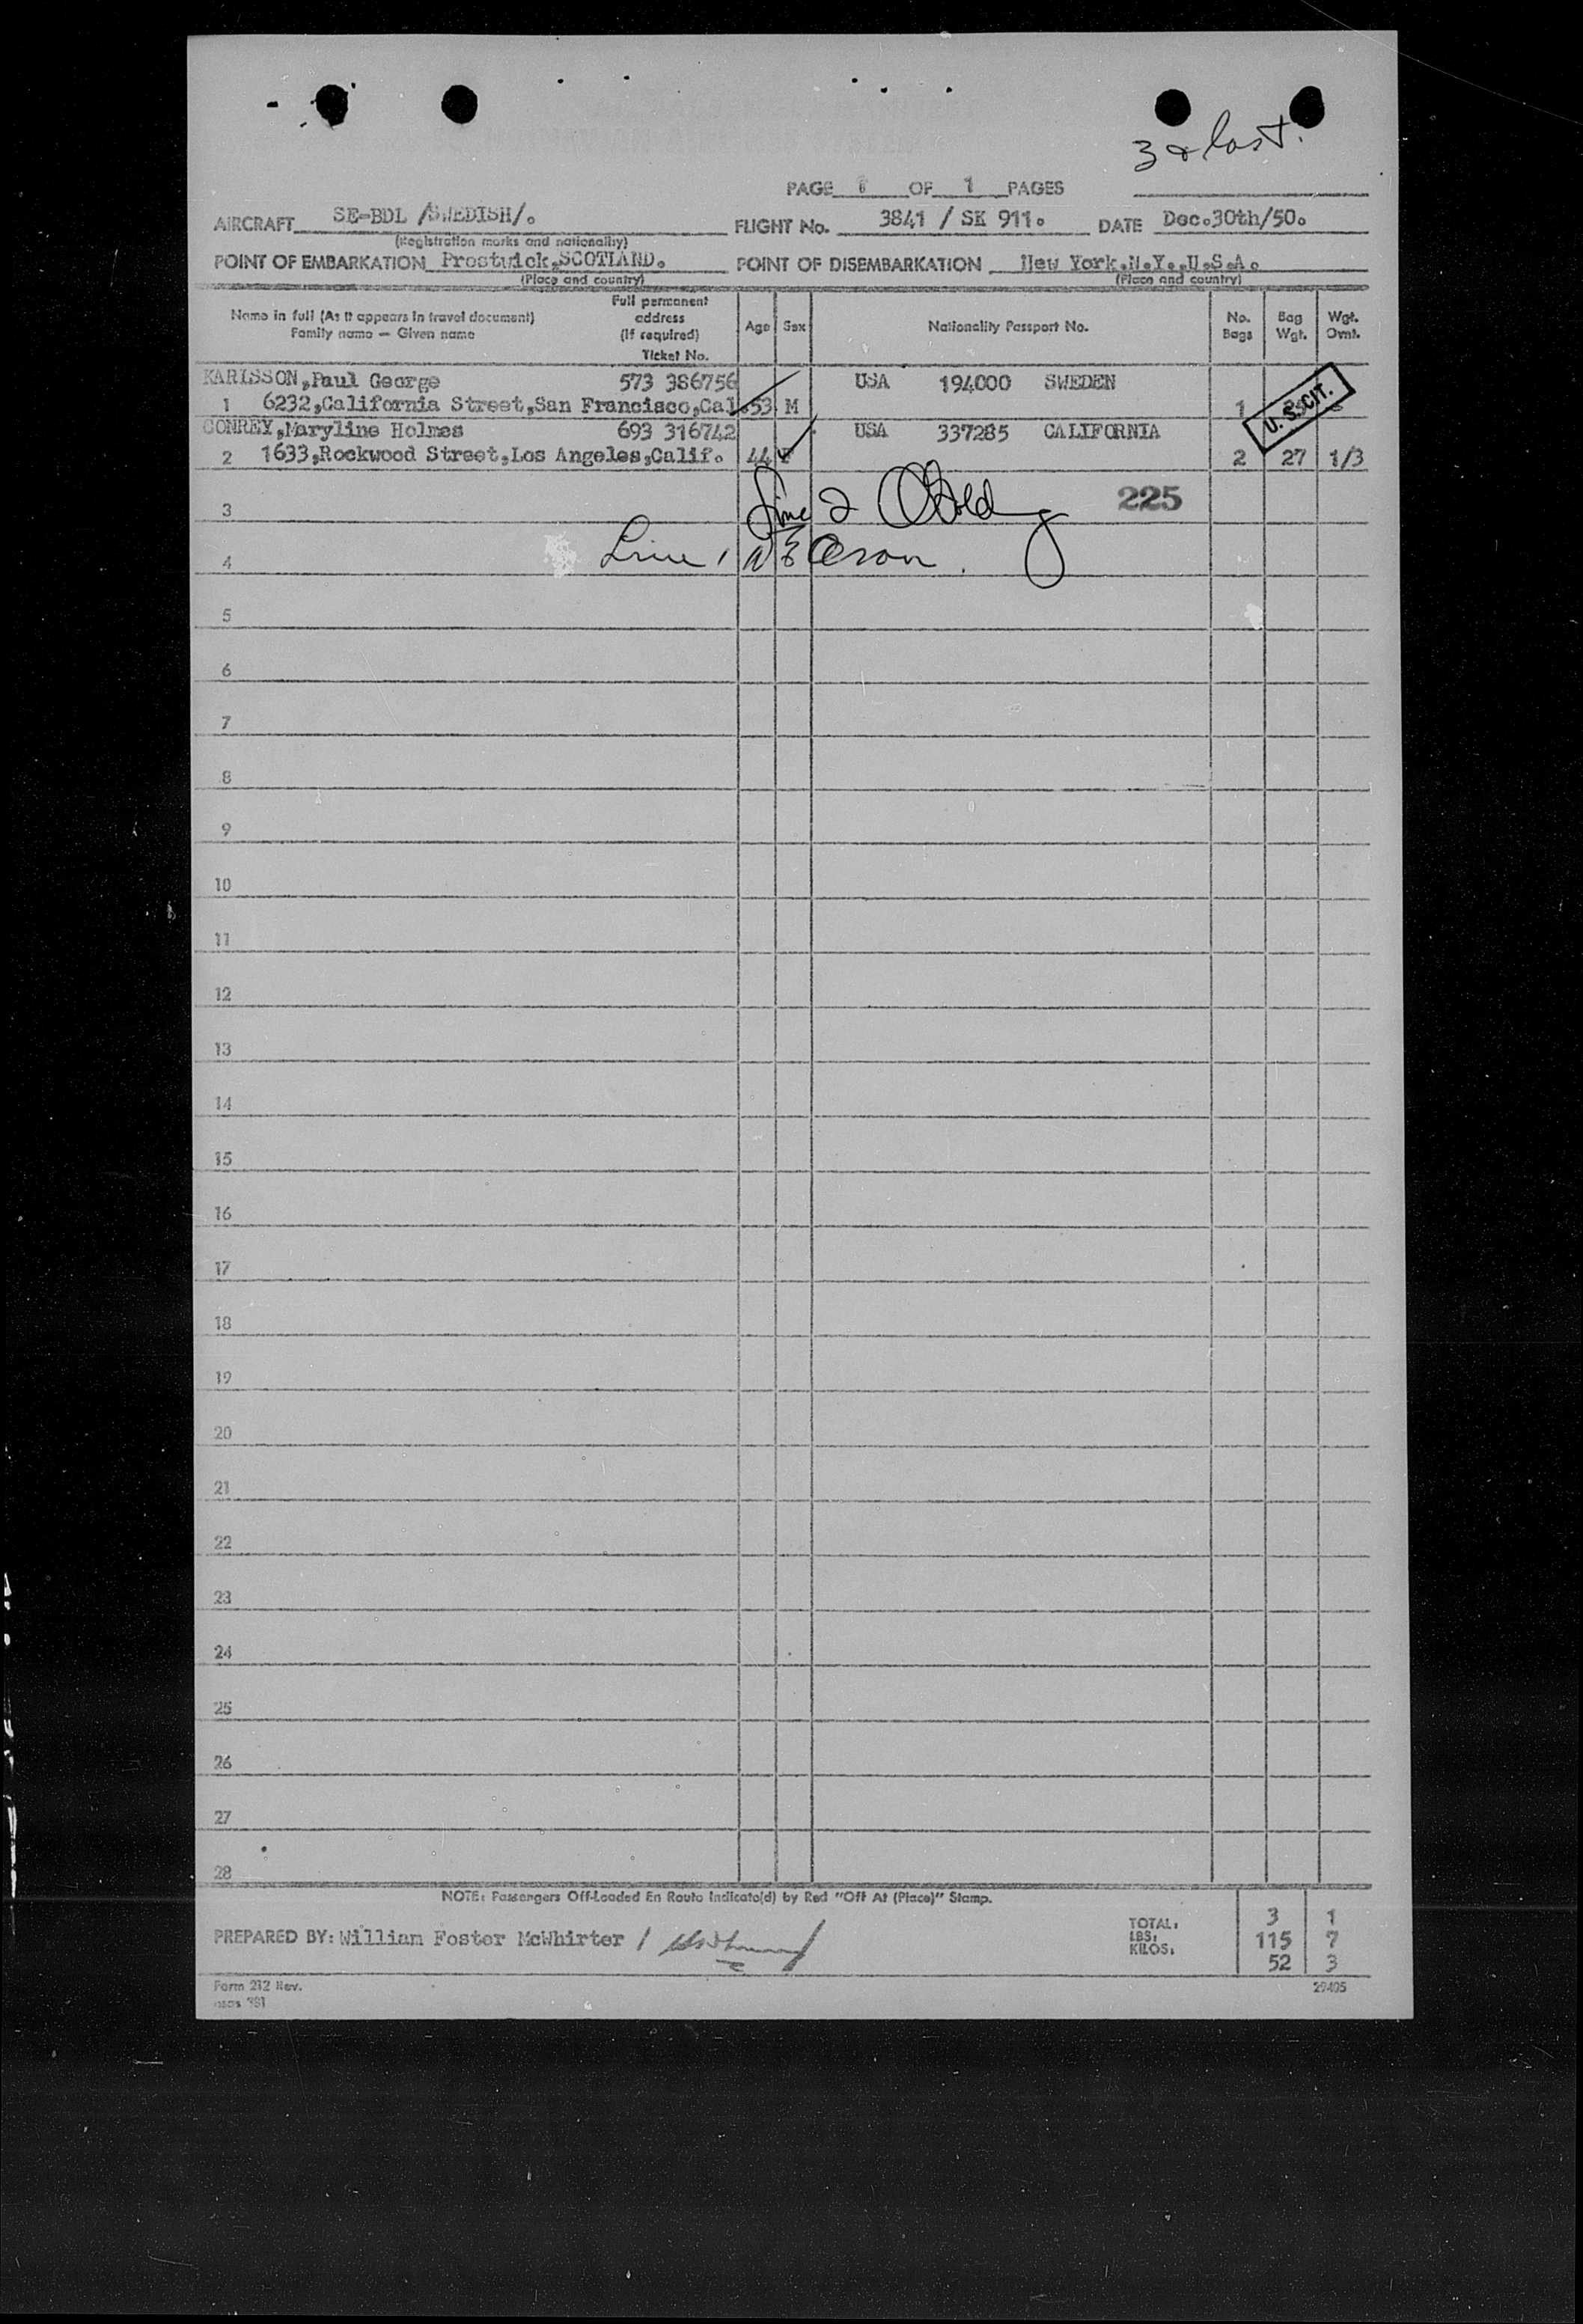 3 & last.
PAGE 1 OF 1 PAGES
AIRCRAFT SE-BDL /SWEDISH/. FLIGHT No. 3841 / SK 911. DATE Dec.30th/50.
(Registration marks and nationality)
POINT OF EMBARKATION Prestwick,SCOTLAND. POINT OF DISEMBARKATION New York,N.Y.,U.S.A.
(Place and country) (Place and country)
Name in full (As it appears in travel document) Family name — Given name Full permanent address (If required) Ticket No. Age Sex Nationality Passport No. No. Bags Bag Wgt. Wgt. Ovwt.
KARLSSON,Paul George 573 386756 USA 194000 SWEDEN
1 6232,California Street,San Francisco,Cal. 53 M 1
U. S. CIT.
CONREY,Maryline Holmes 693 316742 USA 337285 CALIFORNIA
2 1633,Rockwood Street,Los Angeles,Calif. 44 F 2 27 1/3
Line 2
225
3
Line 1
4
5
6
7
8
9
10
11
12
13
14
15
16
17
18
19
20
21
22
23
24
25
26
27
28
NOTE: Passengers Off-Loaded En Route Indicate(d) by Red "Off At (Place)" Stamp.
TOTAL: 3 1
PREPARED BY: William Foster McWhirter /
LBS: 115 7
KILOS: 52 3
Form 212 Rev. 29405